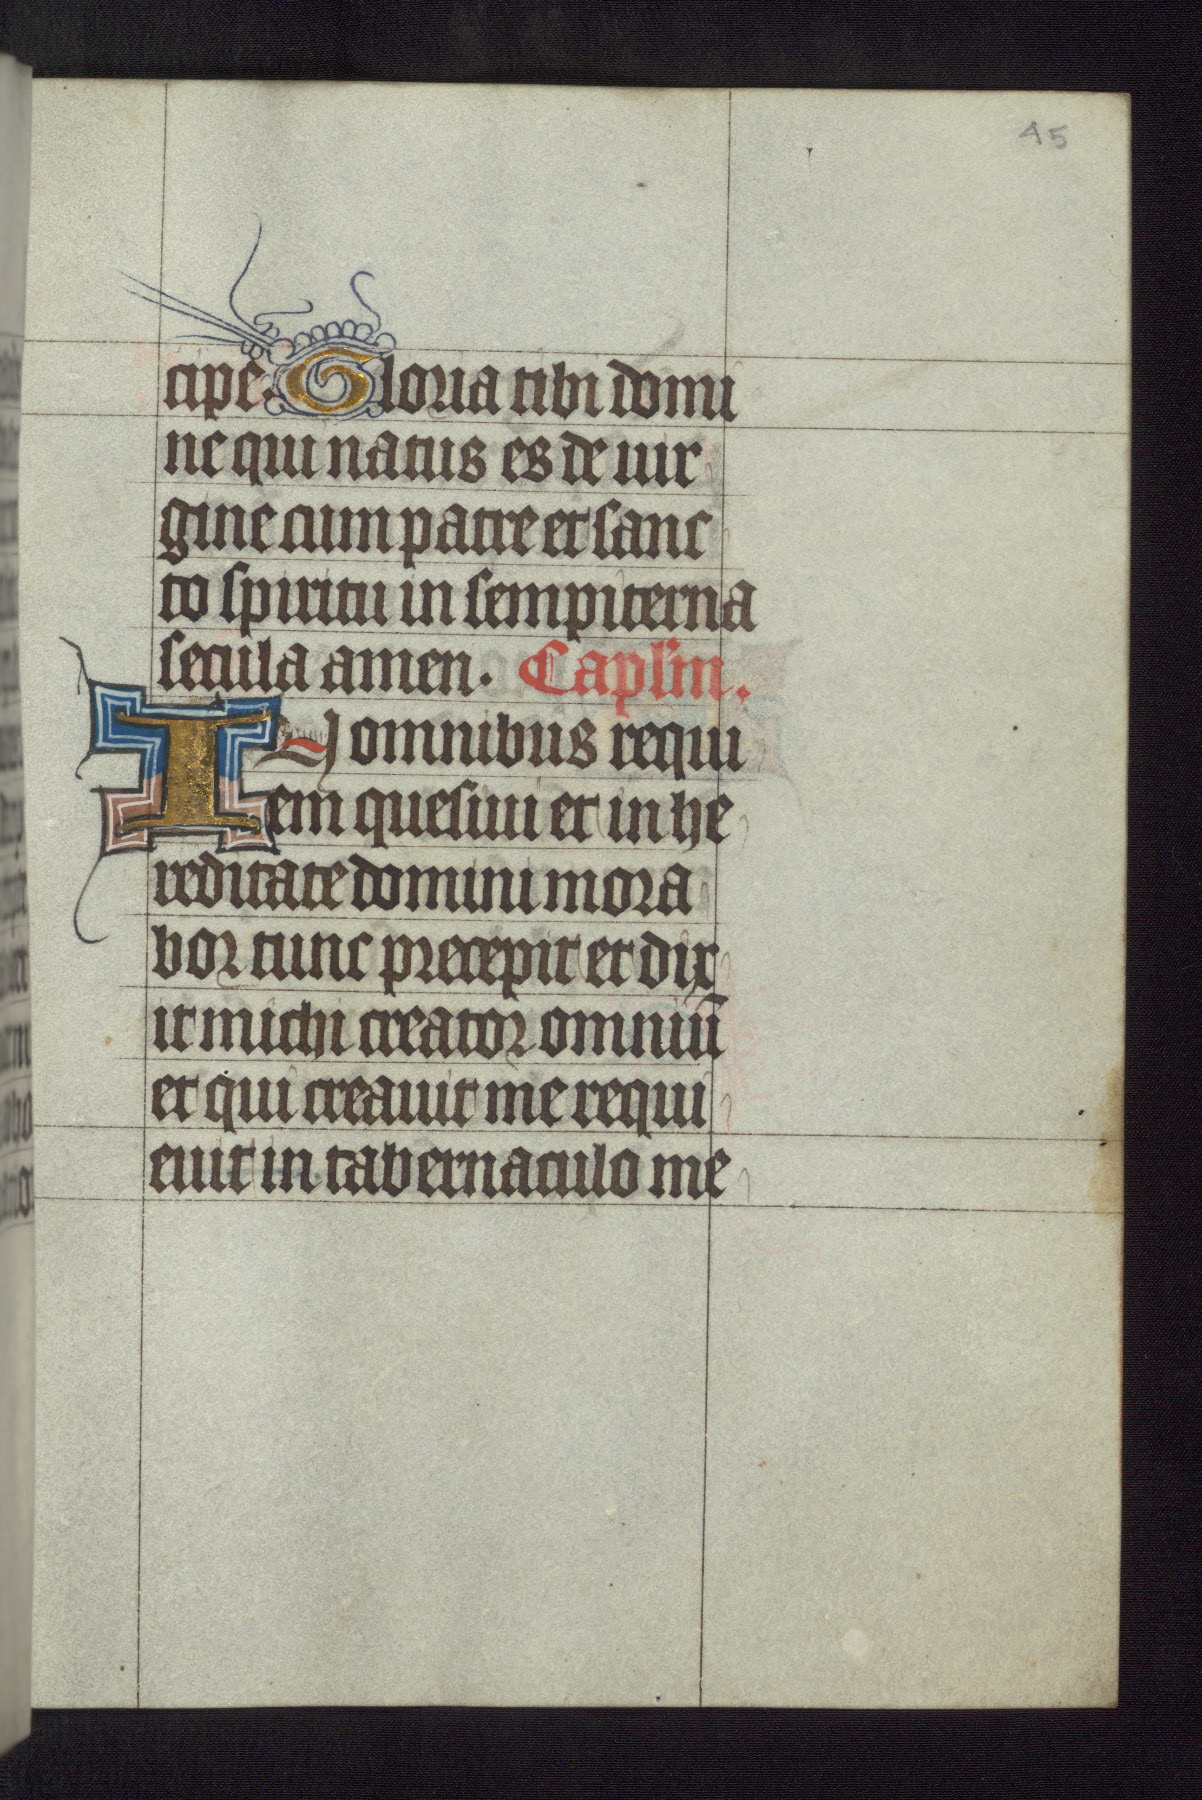 45
cipe. Gloria tibi domi
ne qui natus es de uir
gine cum patre et sanc
to spiritu in sempiterna
secula amen. Caplm.
IN omnibus requi
em quesiui et in he
reditate domini mora
bor tunc precepit et dix
it michi creator omniū
et qui creauit me requi
euit in tabernaculo me